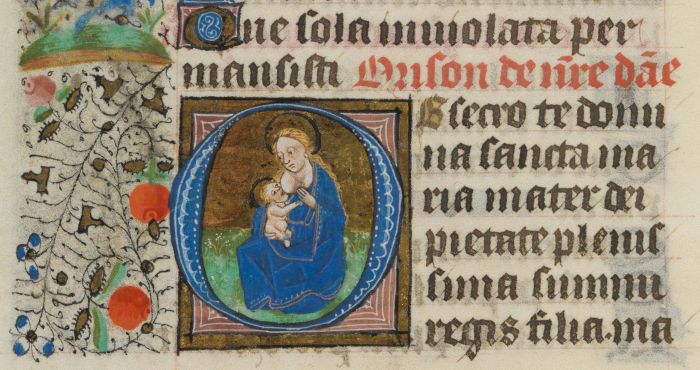 Que sola inuiolata per
mansisti Orison de nr̄e dāe
OBsecro te domi
na sancta ma
ria mater dei
pietate plenis
sima summi
regis filia.ma